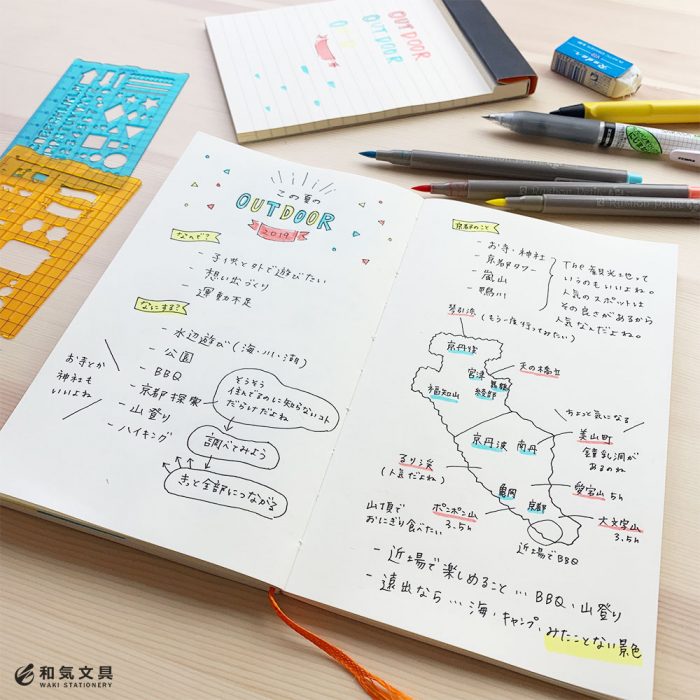 OUTDOOR
OUTDOOR
この夏の
OUTDOOR
2019
なんで?
- 子供と外で遊びたい
- 想い出づくり
- 運動不足
なにする?
- 水辺遊び(海・川・湖)
- 公園
- BBQ
- 京都探索
- 山登り
- ハイキング
お寺とか
神社も
いいよね
そうそう
住んでるのに知らないコト
だらけだよね
調べてみよう
きっと全部につながる
京都のこと
- お寺・神社
- 京都タワー
- 嵐山
- 鴨川
The 観光地って
いうのもいいよね。
人気のスポットは
その良さがあるから
人気なんだよね。
琴引浜 (もう一度行ってみたい)
京丹後
天の橋立
宮津
舞鶴
福知山
綾部
ちょっと気になる
美山町
鍾乳洞が
あるのね
京丹波 南丹
るり渓
(人気だよね)
愛宕山 5h
亀岡 京都
ポンポン山
3.5h
大文字山
3.5h
山頂で
おにぎり食べたい
近場でBBQ
- 近場で楽しめること… BBQ、山登り
- 遠出なら… 海・キャンプ・みたことない景色
和気文具
WAKI STATIONERY